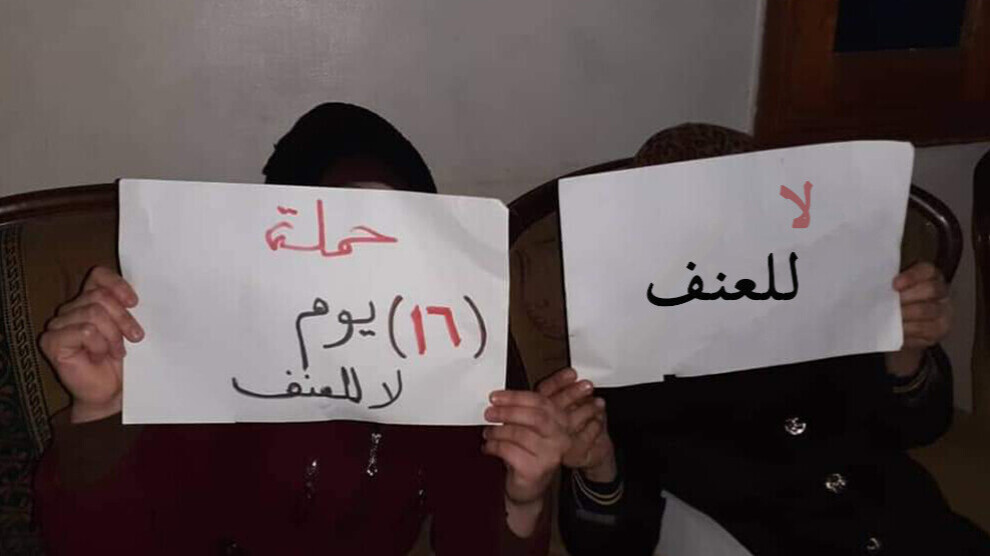 حملة
(١٦) يوم
لا للعنف
لا
للعنف